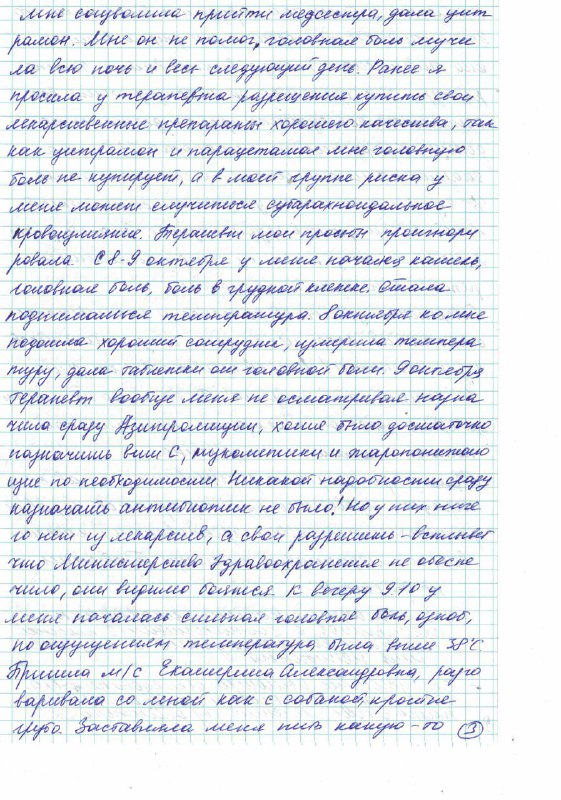 Мне соизволила прийти медсестра, дала цит
рамон. Мне он не помог, головная боль мучи
ла всю ночь и весь следующий день. Ранее я
просила у терапевта разрешения купить свои
лекарственные препараты хорошего качества, так
как цитрамон и парацетамол мне головную
боль не купирует, а в моей группе риска у
меня может случиться субарахноидальное
кровоизлияние. Терапевт мои просьбы проигнори
ровала. С 8-9 октября у меня начался кашель,
головная боль, боль в грудной клетке. Стала
подниматься температура. 8 октября ко мне
подошла хороший сотрудник, измерила темпера
туру, дала таблетки от головной боли. 9 октября
терапевт вообще меня не осматривая назна
чила сразу Азитромицин, хотя было достаточно
назначить вит С, муколитики и жаропонижаю
щие по необходимости. Никакой надобности сразу
назначать антибиотик не было! Но у них ниче
го нет из лекарств, а свои разрешить - всплывет
что Министерство Здравоохранения не обеспе
чило, они видимо боятся. К вечеру 9.10 у
меня началась сильная головная боль, озноб,
по ощущениям температура была выше 38°С.
Пришла м/с Екатерина Александровна, разго
варивала со мной как с собакой, кротне
грубо. Заставляла меня пить какую-то ③